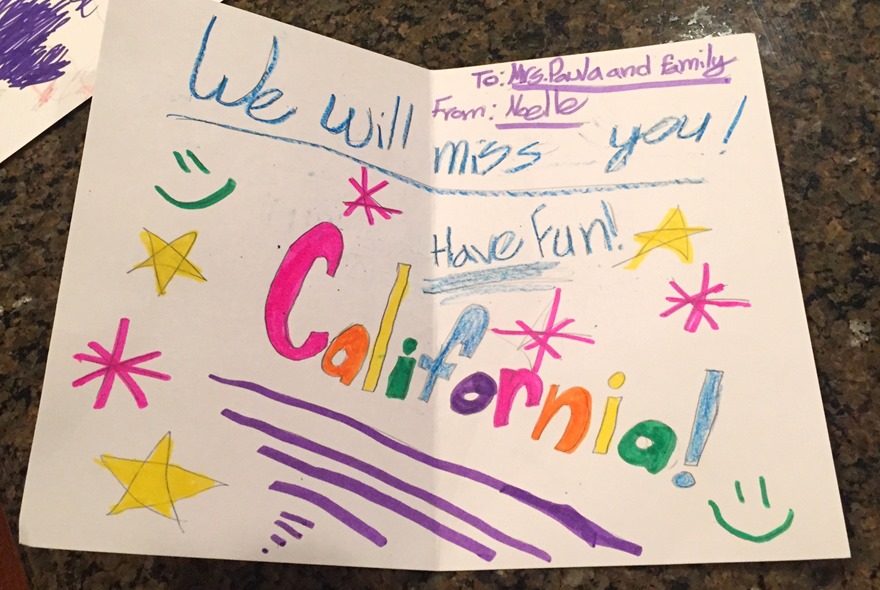 To: Mrs. Paula and Family
From: Noelle
We will miss you!
Have Fun!
California!